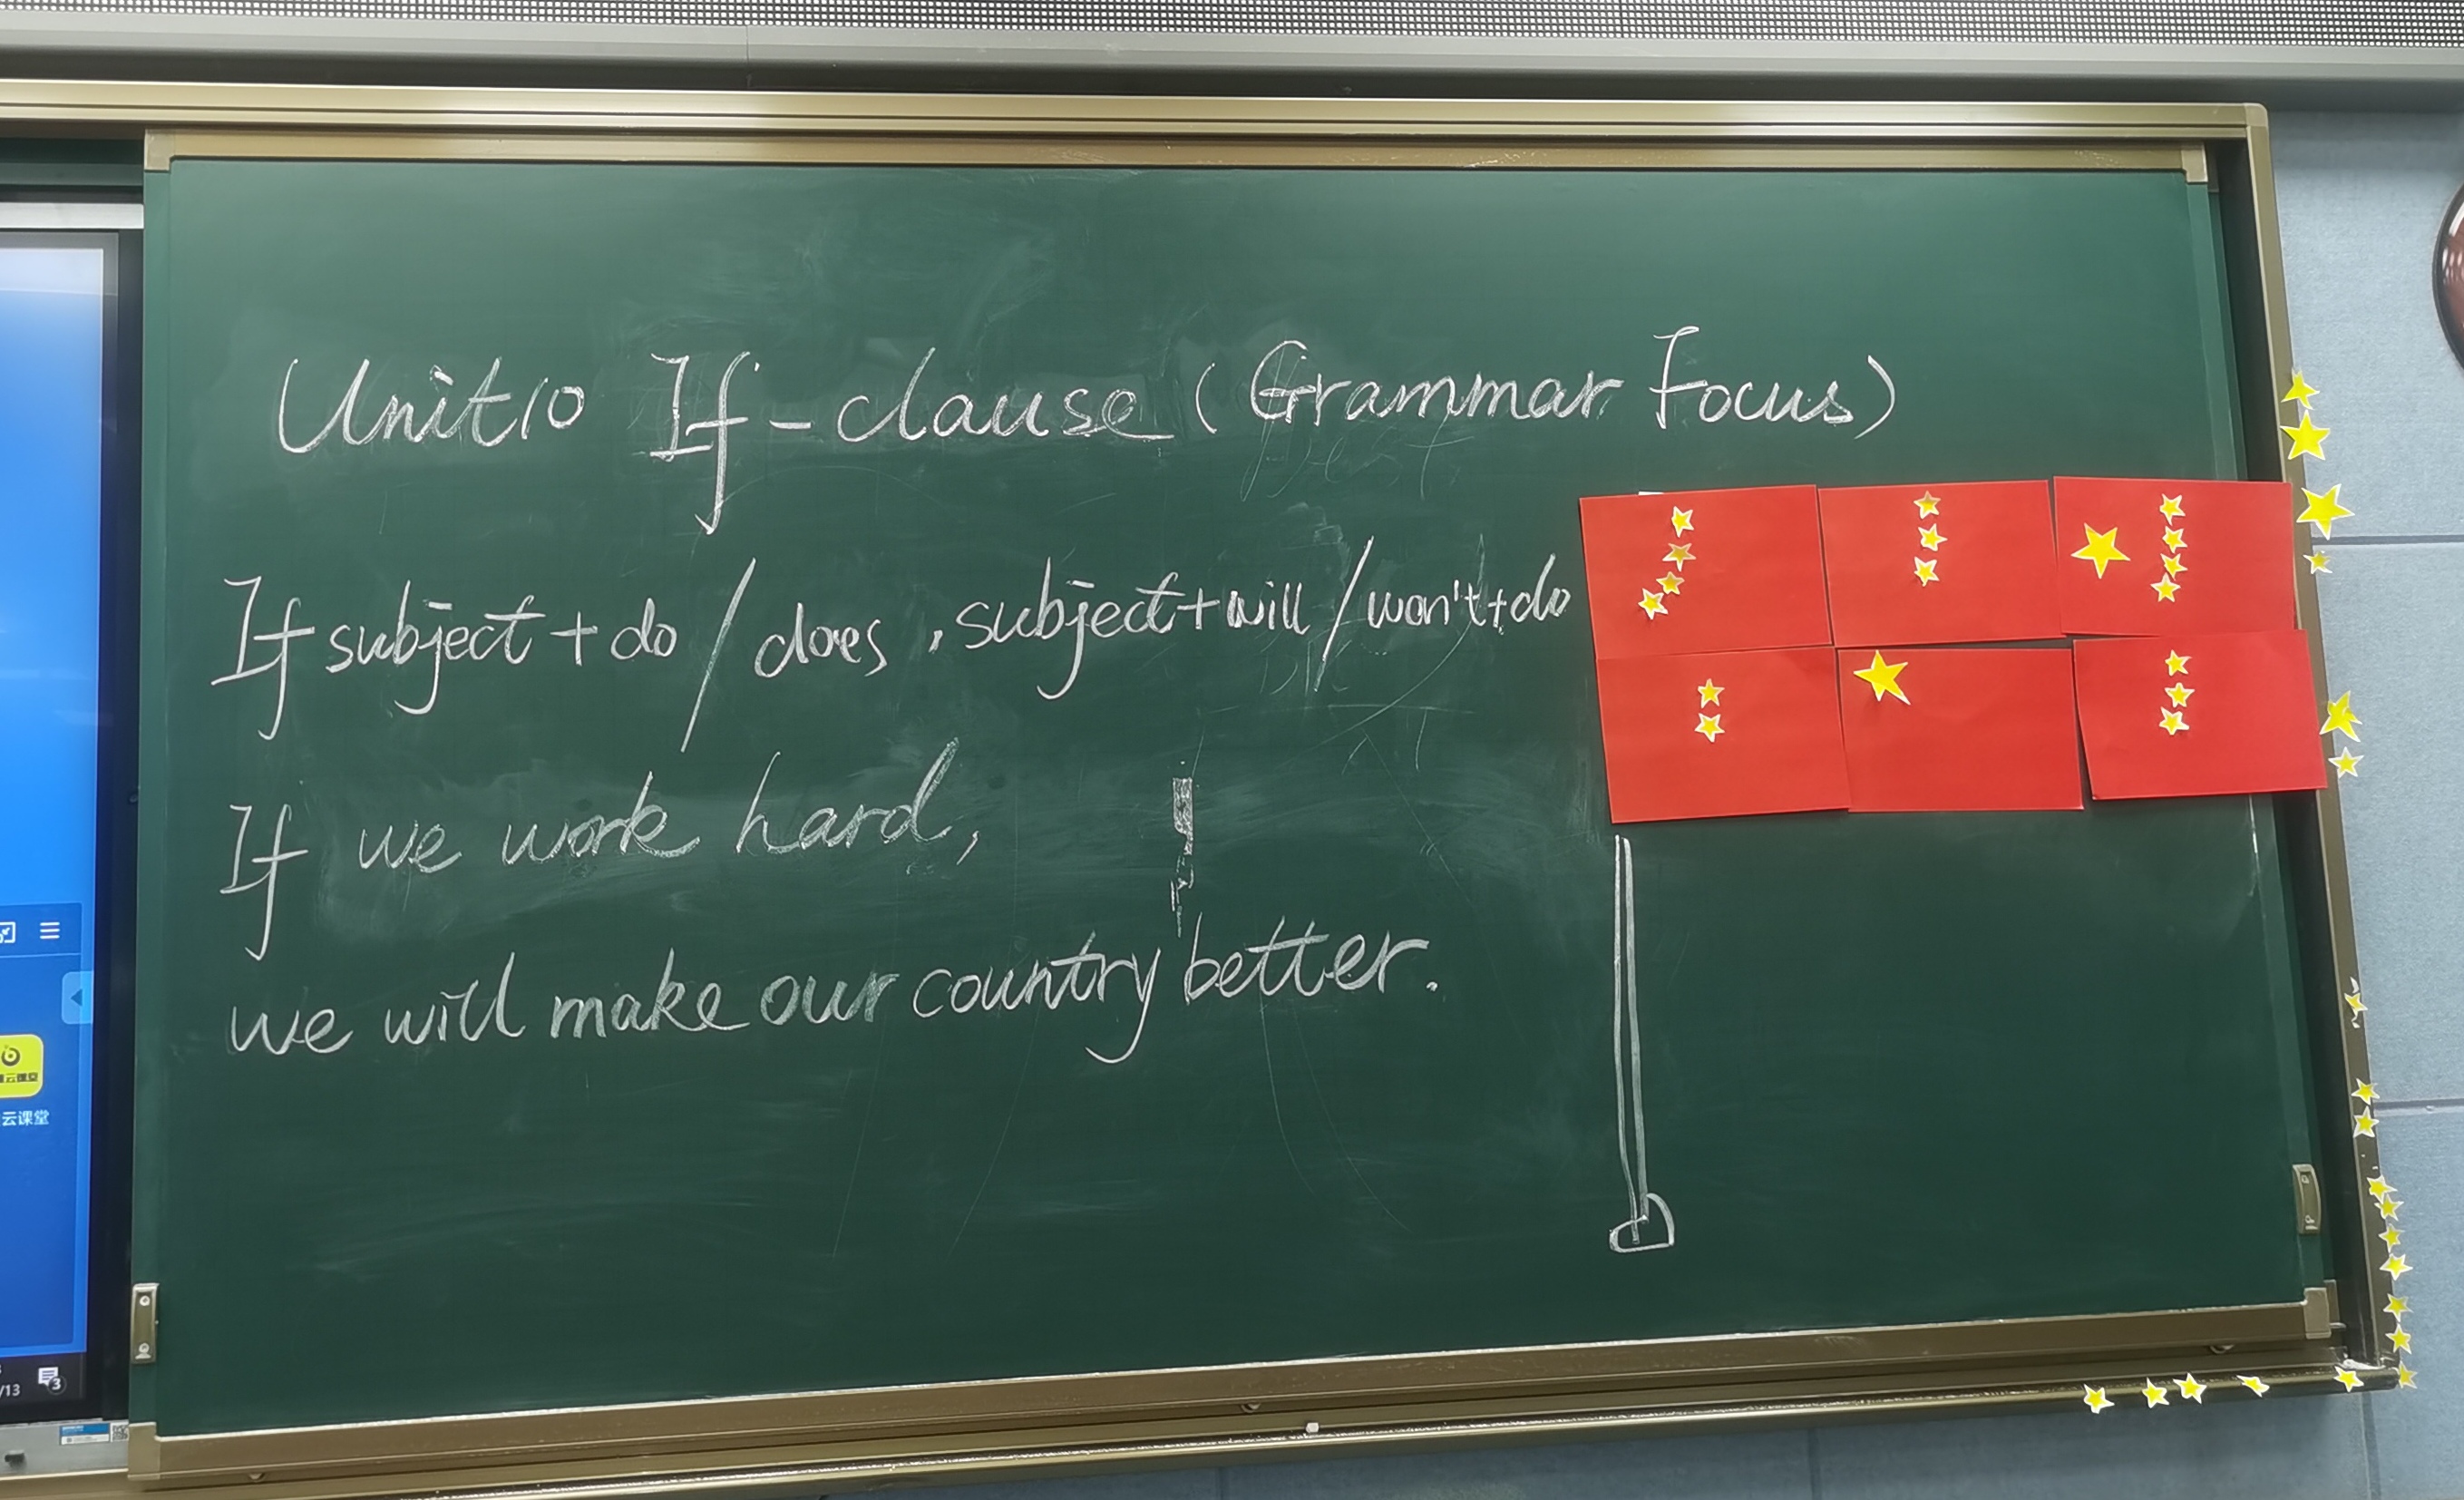 Unit10 If-clause (Grammar Focus)
If subject+do/does, subject+will/won't+do
If we work hard,
we will make our country better.
云课堂
/13
3